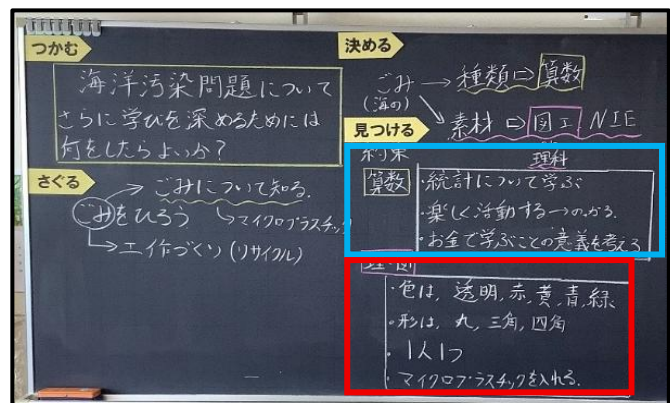 つかむ
海洋汚染問題について
さらに学びを深めるためには
何をしたらよいか?
さぐる
→ごみについて知る
ごみをひろう →マイクロプラスチック
→工作づくり(リサイクル)
決める
ごみ → 種類 ⇨ 算数
(海の)
素材 ⇨ 図工 NIE
理科
見つける
約束
算数
・統計について学ぶ
・楽しく活動する→のっかる
・お金で学ぶことの意義を考える
理・図
・色は、透明,赤,黄,青,緑
・形は、丸,三角,四角
・1人1つ
・マイクロプラスチックを入れる.